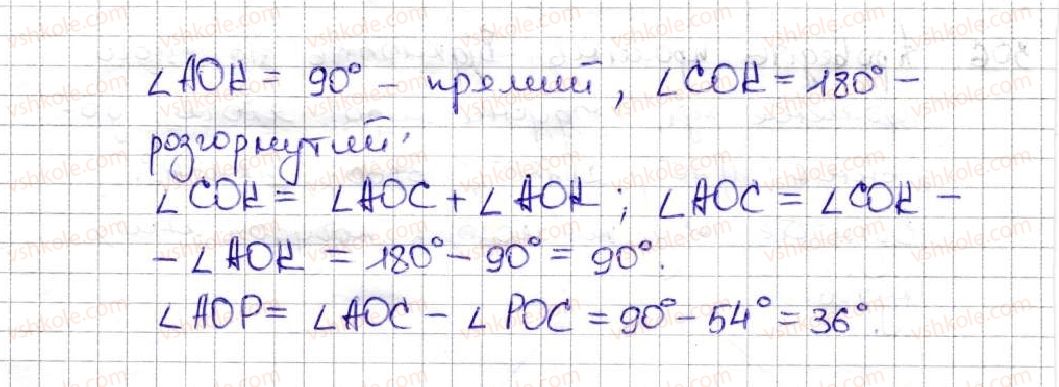 ∠AOK = 90° – прямий, ∠COK = 180° –
розгорнутий.
∠COK = ∠AOC + ∠AOK; ∠AOC = ∠COK –
– ∠AOK = 180° – 90° = 90°.
∠AOP = ∠AOC – ∠POC = 90° – 54° = 36°.